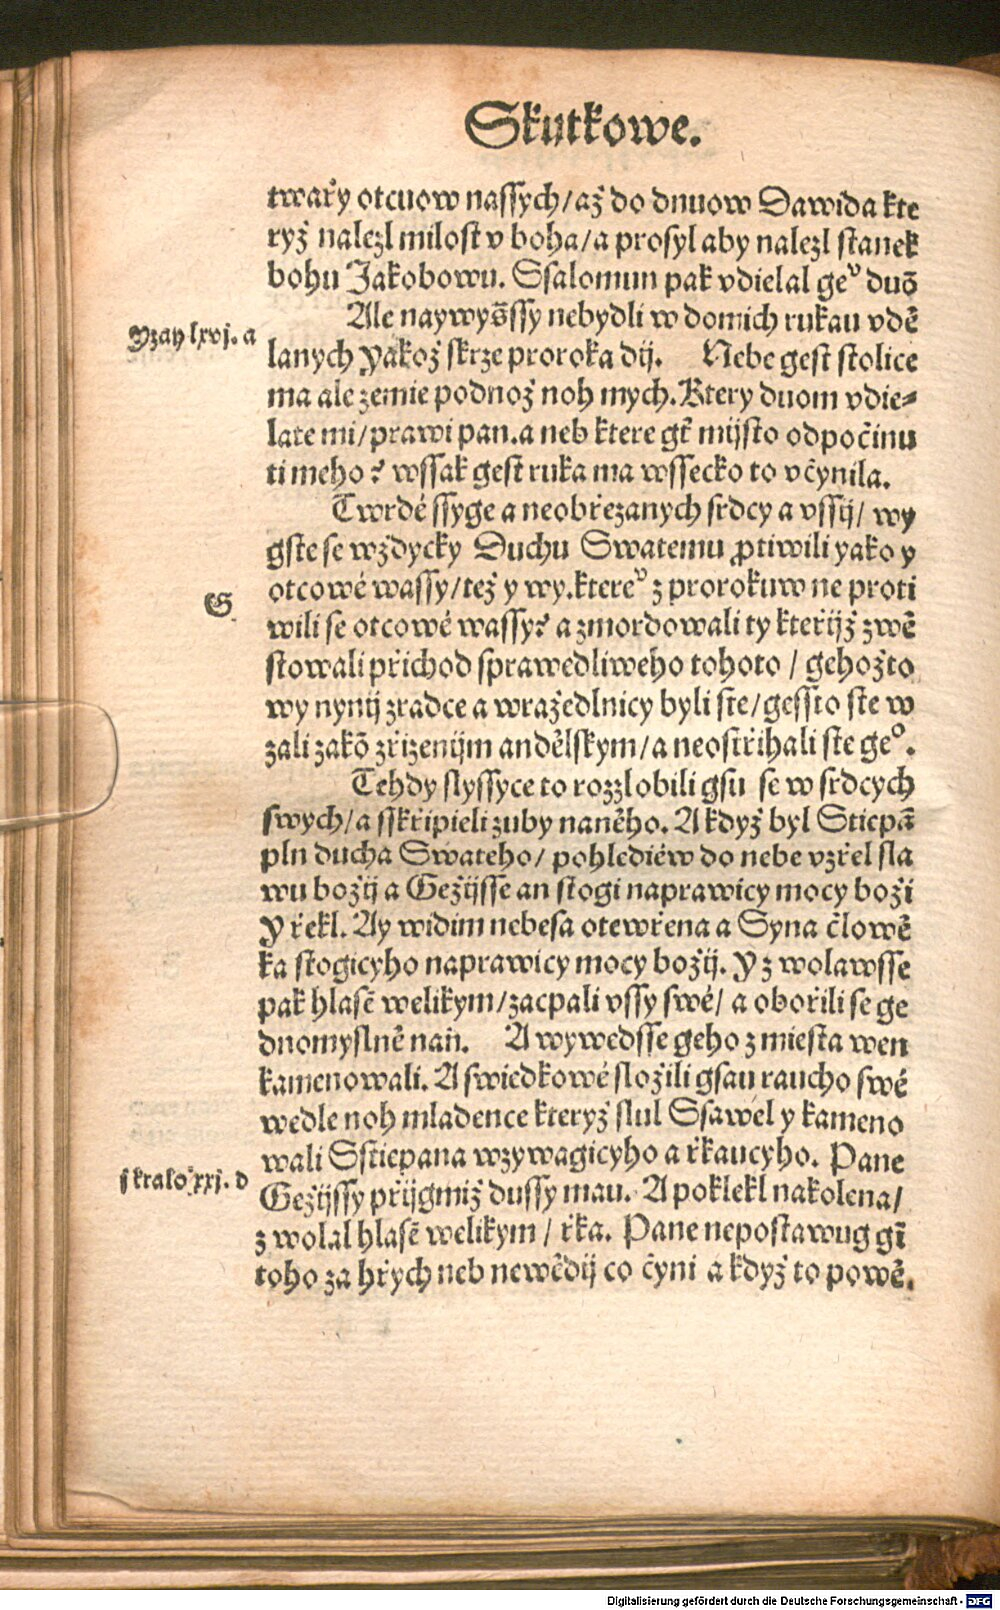 Skutkowe.
twařy otcuow nassych/až do dnuow Dawida kte
ryž nalezl milost v boha/a prosyl aby nalezl stanek
bohu Jakobowu. Ssalomun pak vdielal geͮ duō
Ale naywyōssy nebydli w domich rukau vdě
Yzay lxvj. a
lanych yakož skrze proroka dij. Nebe gest stolice
ma ale zemie podnož noh mych. Ktery duom vdie⸗
late mi/prawi pan.a neb ktere gt̄ mijsto odpočinu
ti meho? wssak gest ruka ma wssecko to včynila.
Twrdé ssyge a neobřezanych srdcy a vssij/ wy
gste se wždycky Duchu Swatemu ꝓtiwili yako y
otcowé wassy/též y wy.ktereͮ z prorokuw ne proti
G
wili se otcowé wassy? a zmordowali ty kteřijž zwě
stowali přichod sprawedliweho tohoto / gehožto
wy nynij zradce a wražedlnicy byli ste/gessto ste w
zali zakō zřizenijm andělskym/a neostřihali ste geº.
Tehdy slyssyce to rozzlobili gsu se w srdcych
swych/a sskřipieli zuby naněho. A když byl Stiepā
pln ducha Swateho/ pohlediéw do nebe vzřel sla
wu božij a Gežijsse an stogi naprawicy mocy boži
Y řekl. Ay widim nebesa otewřena a Syna člowě
ka stogicyho naprawicy mocy božij. Y z wolawsse
pak hlasē welikym/zacpali vssy swé/ a obořili se ge
dnomyslně naň. A wywedsse geho z miesta wen
kamenowali. A swiedkowé složili gsau raucho swé
wedle noh mladence kteryž slul Ssawel y kameno
wali Sstiepana wzywagicyho a řkaucyho. Pane
j kralo. xxj. d
Gežijssy přijgmiž dussy mau. A poklekl nakolena/
z wolal hlasē welikym / řka. Pane nepostawug gī
toho za hřych neb newědij co čyni a když to powě.
Digitalisierung gefördert durch die Deutsche Forschungsgemeinschaft - DFG